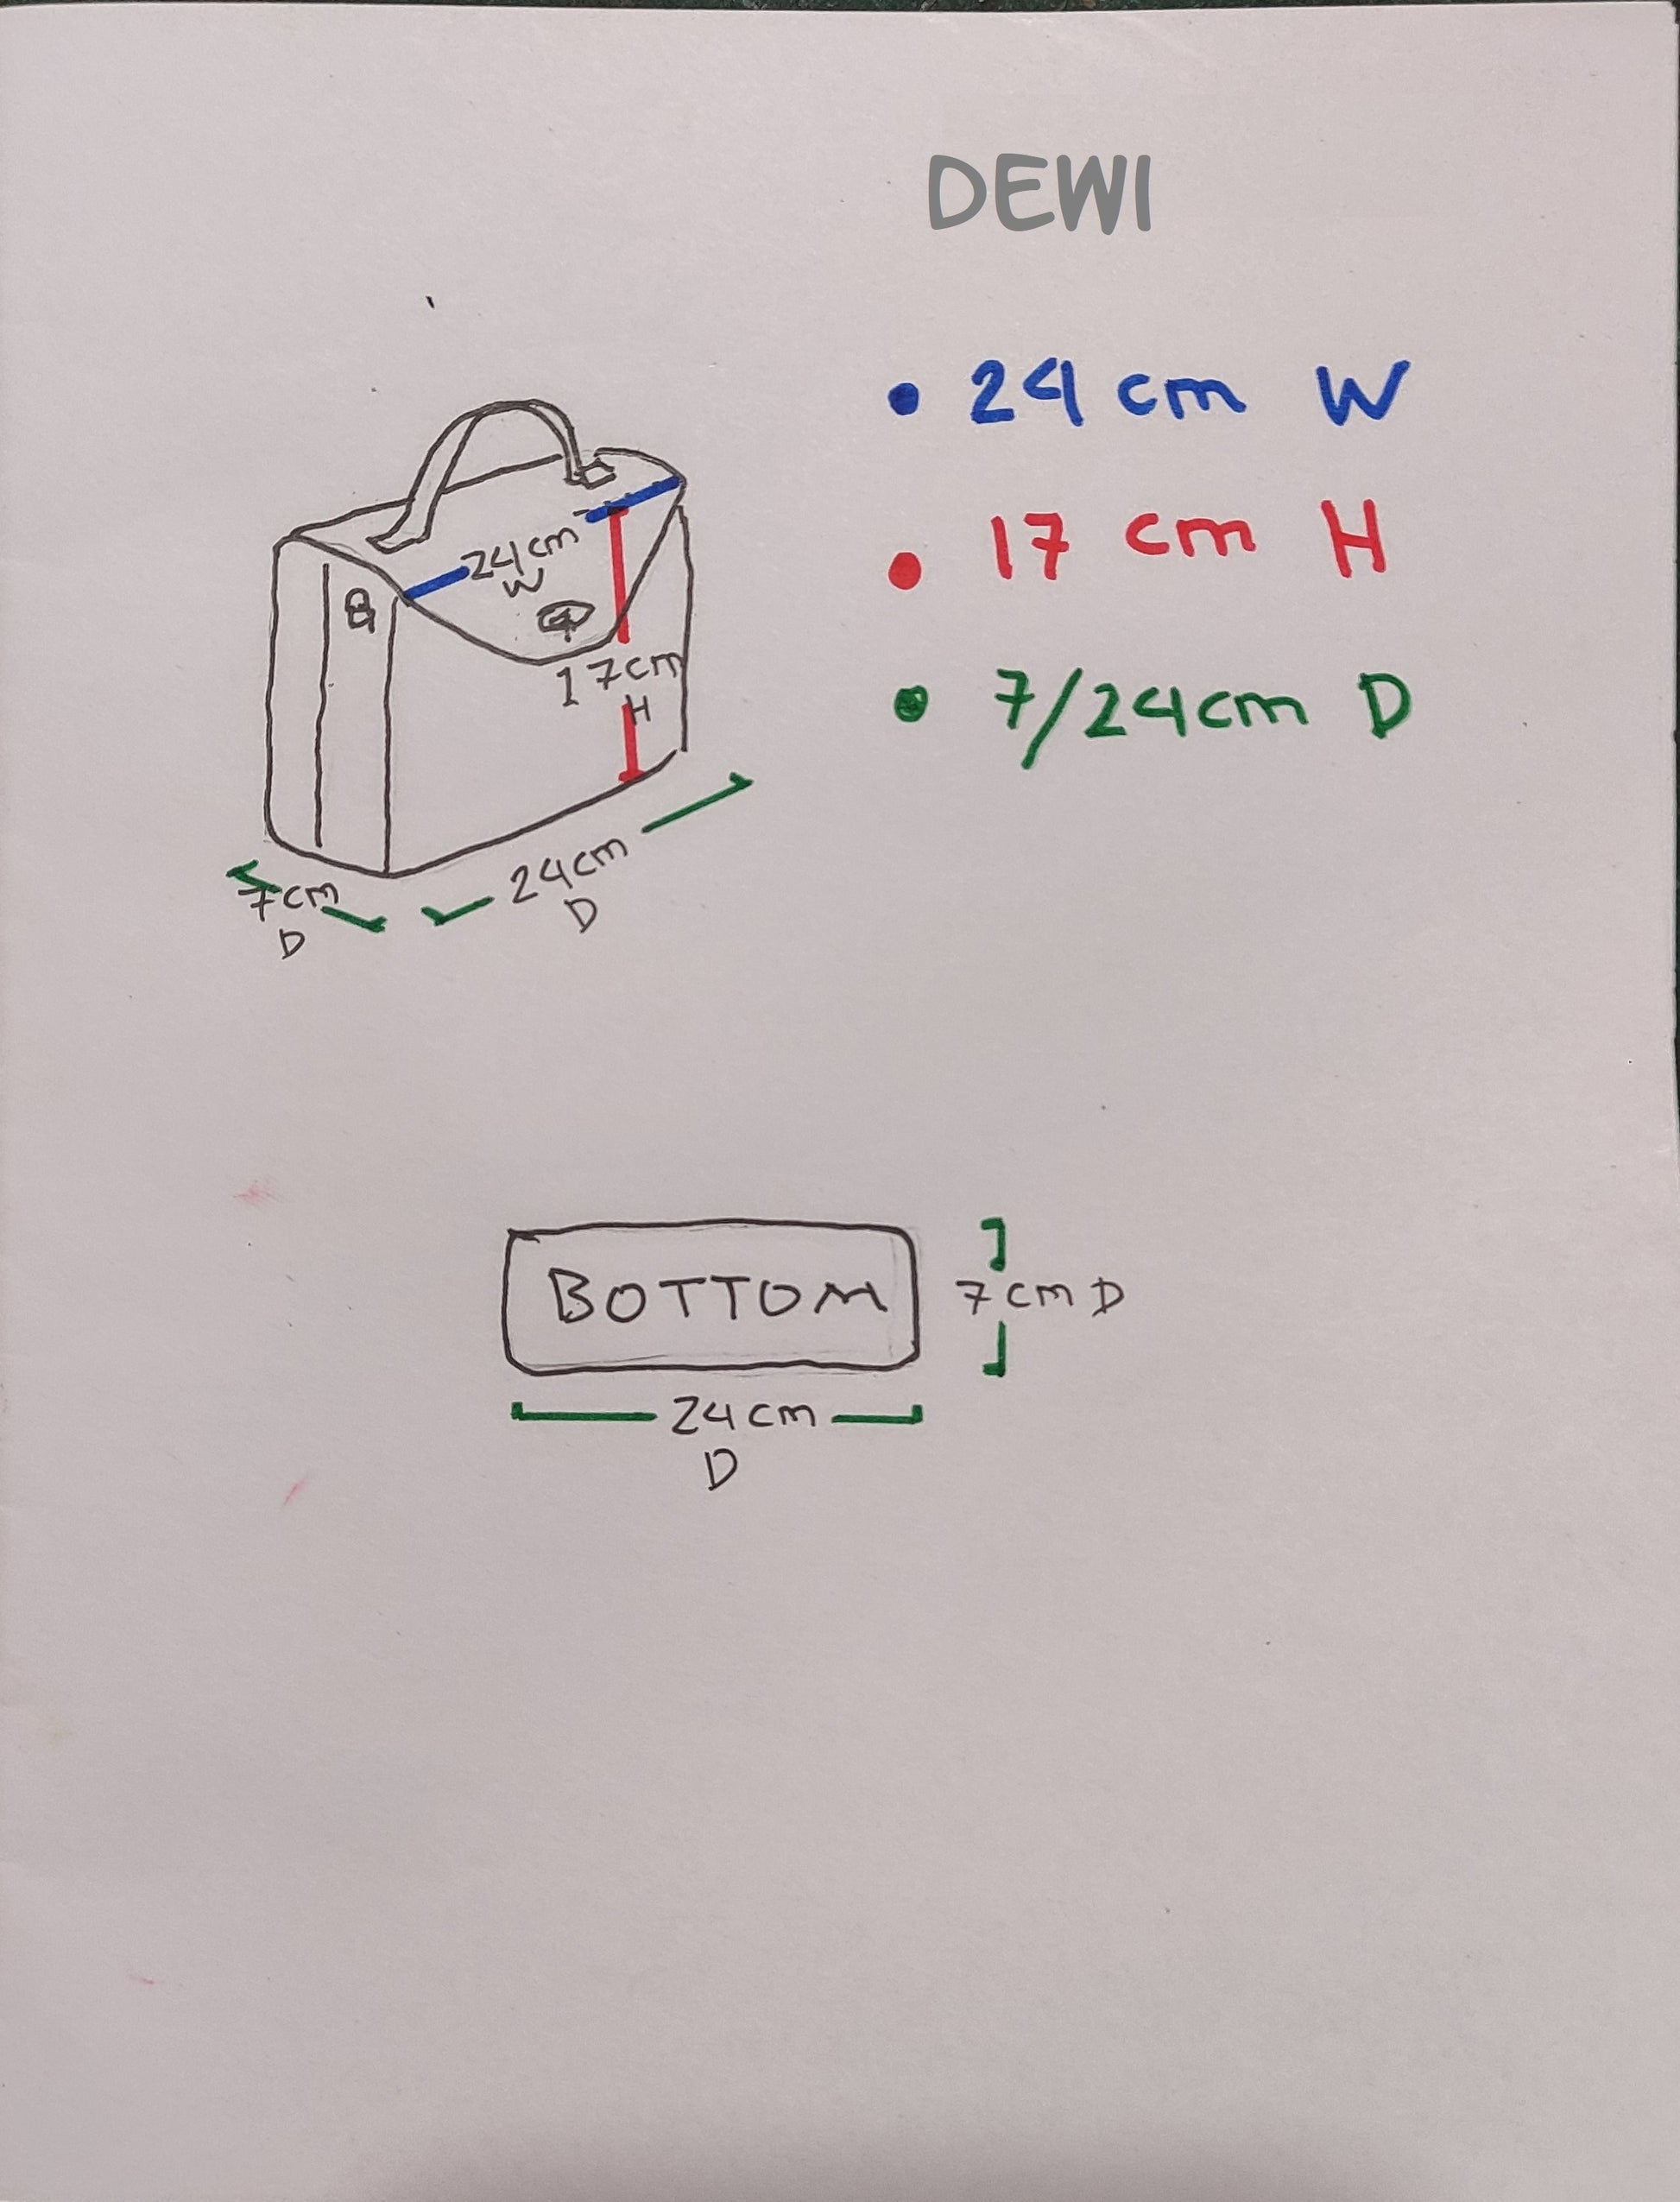 DEWI
24 cm W
17 cm H
7/24cm D
24cm
W
17cm
H
7cm
D
24cm
D
BOTTOM
7cm D
24cm
D